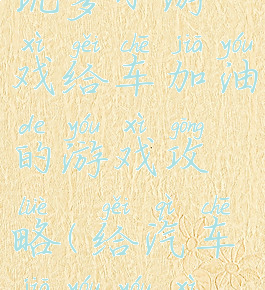 xì gěi chē jiā yóu
戏给车加油
de yóu xì gōng
的游戏攻
lüè gěi qì chē
略(给汽车